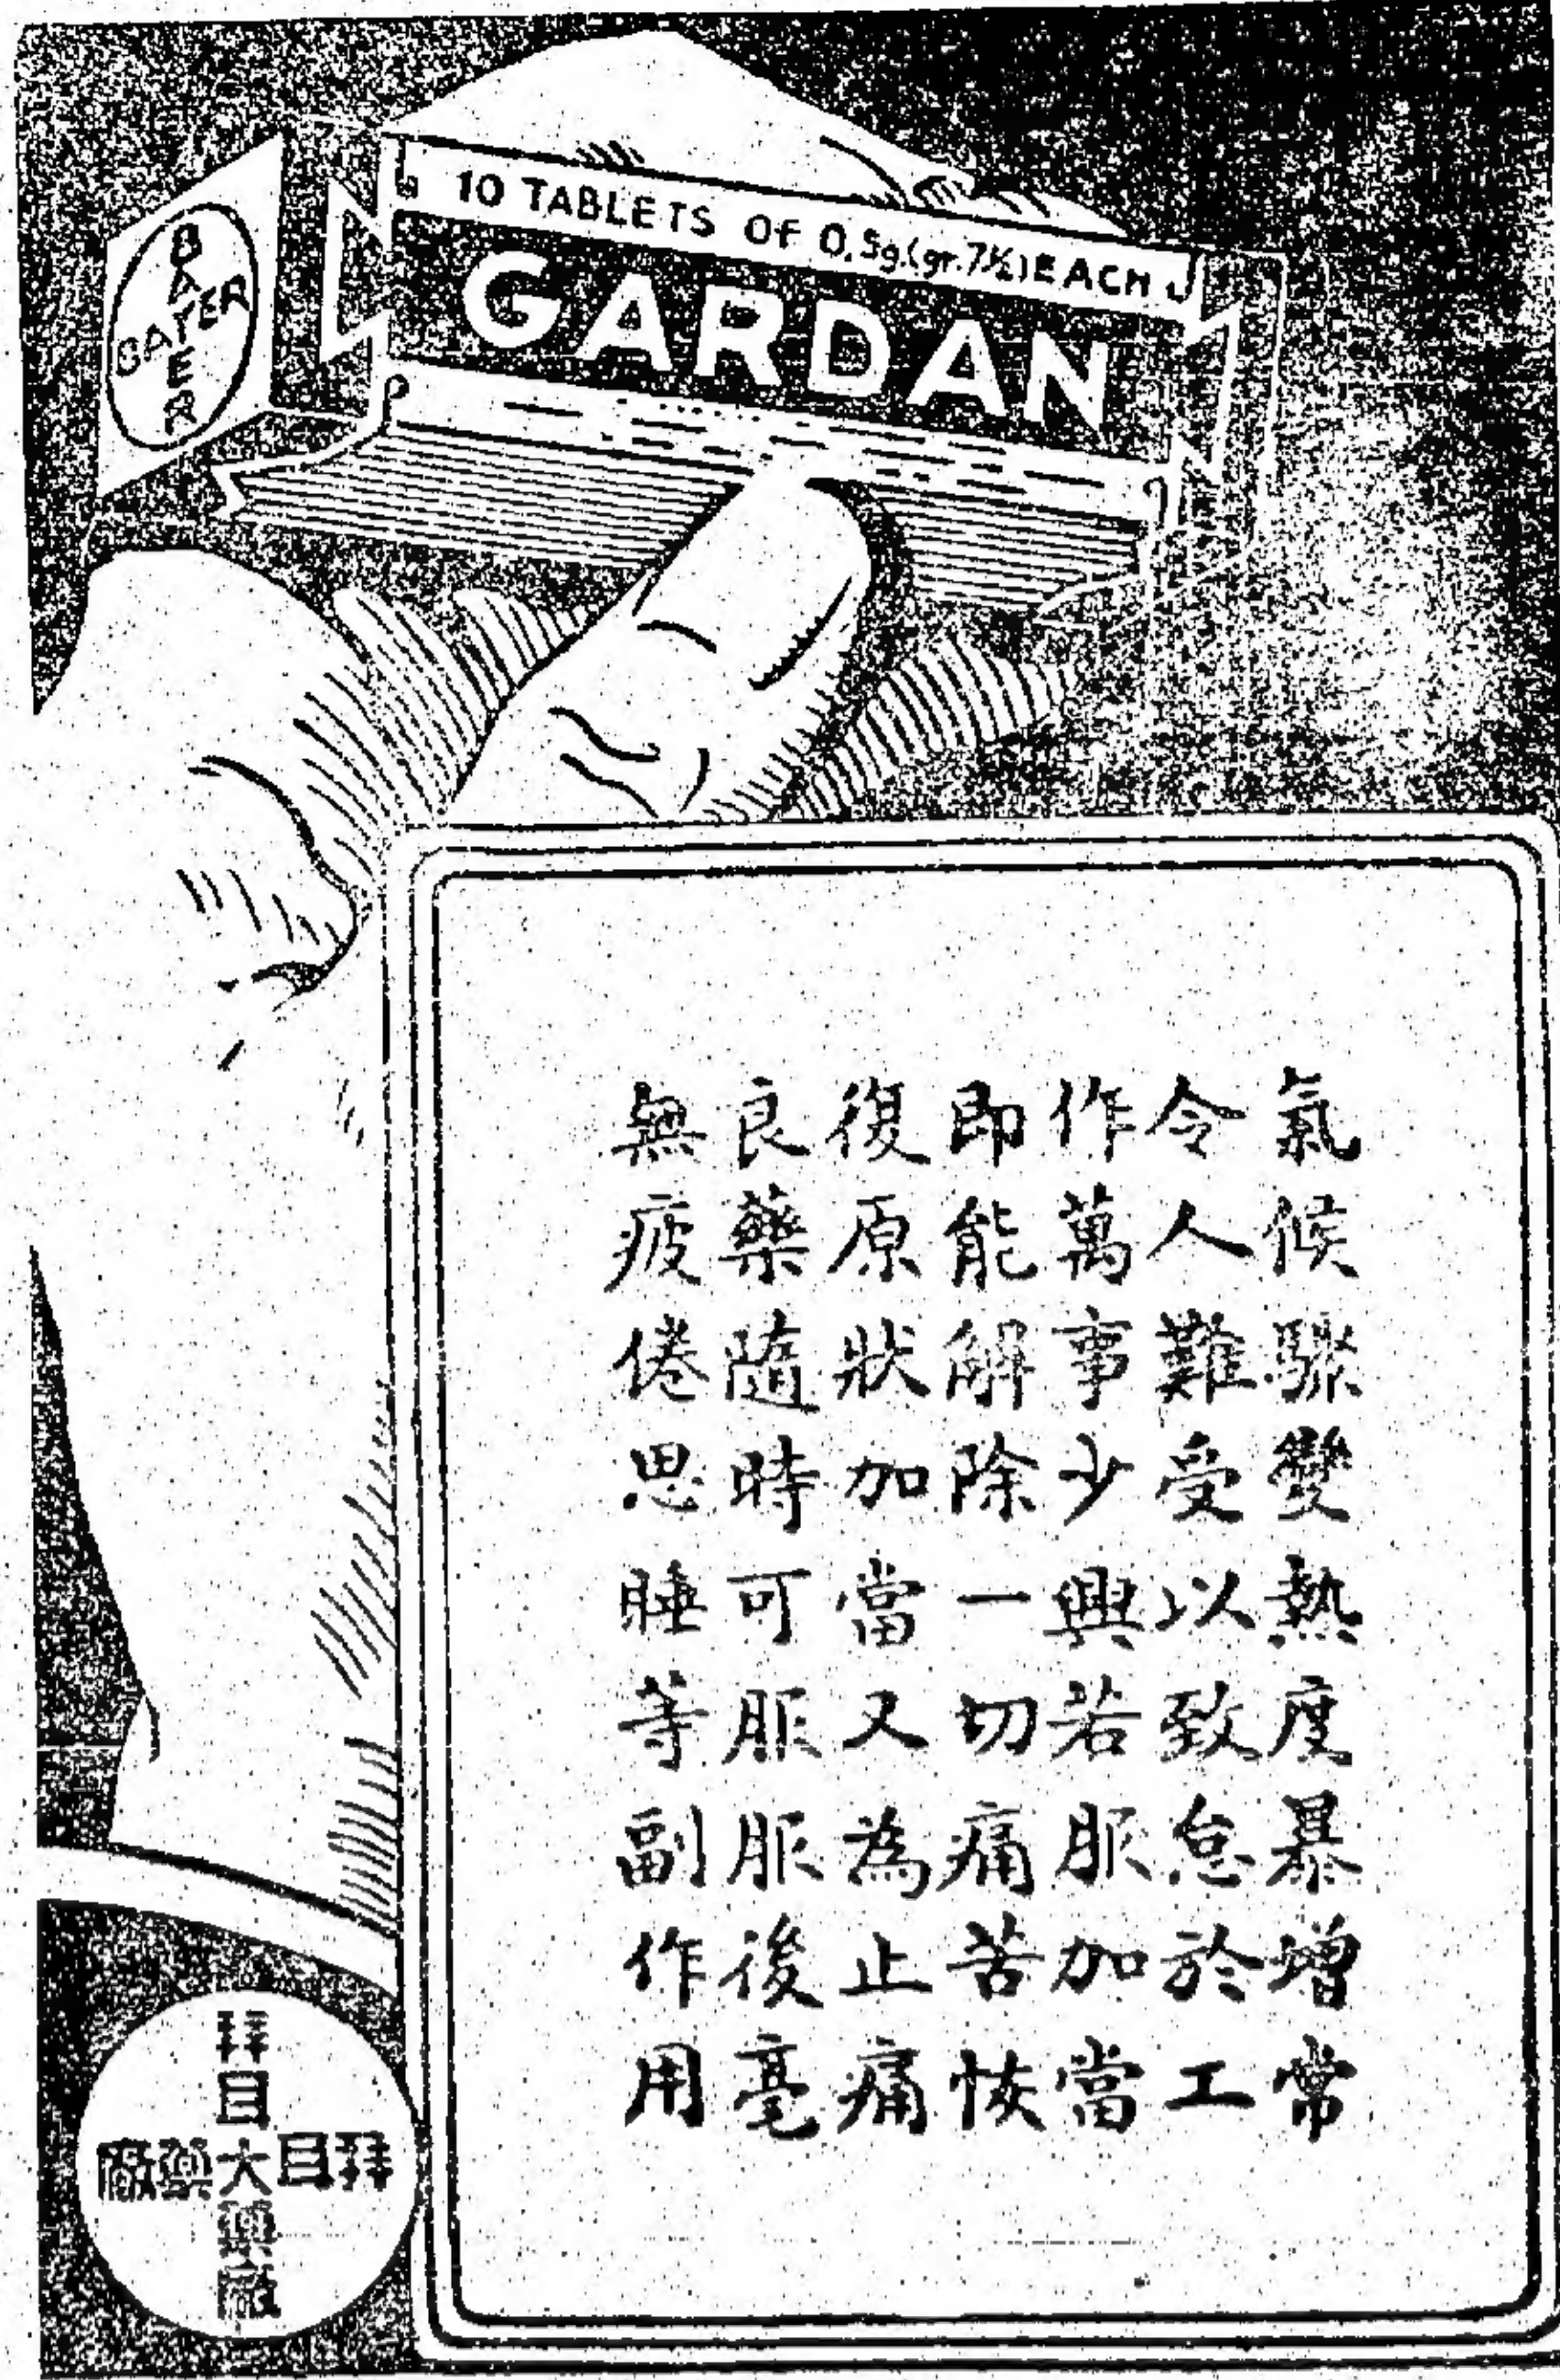 10 TABLETS OF 0.5g.(gr.7½) EACH
GARDAN
BAYER
BAYER
氣候驟變熱度暴增常
令人難受以致怠於工
作萬事少興若服加當
即能解除一切痛苦恢
復原狀加當又為止痛
良藥隨時可服服後毫
無疲倦思睡等副作用
拜耳大藥廠
拜耳大藥廠